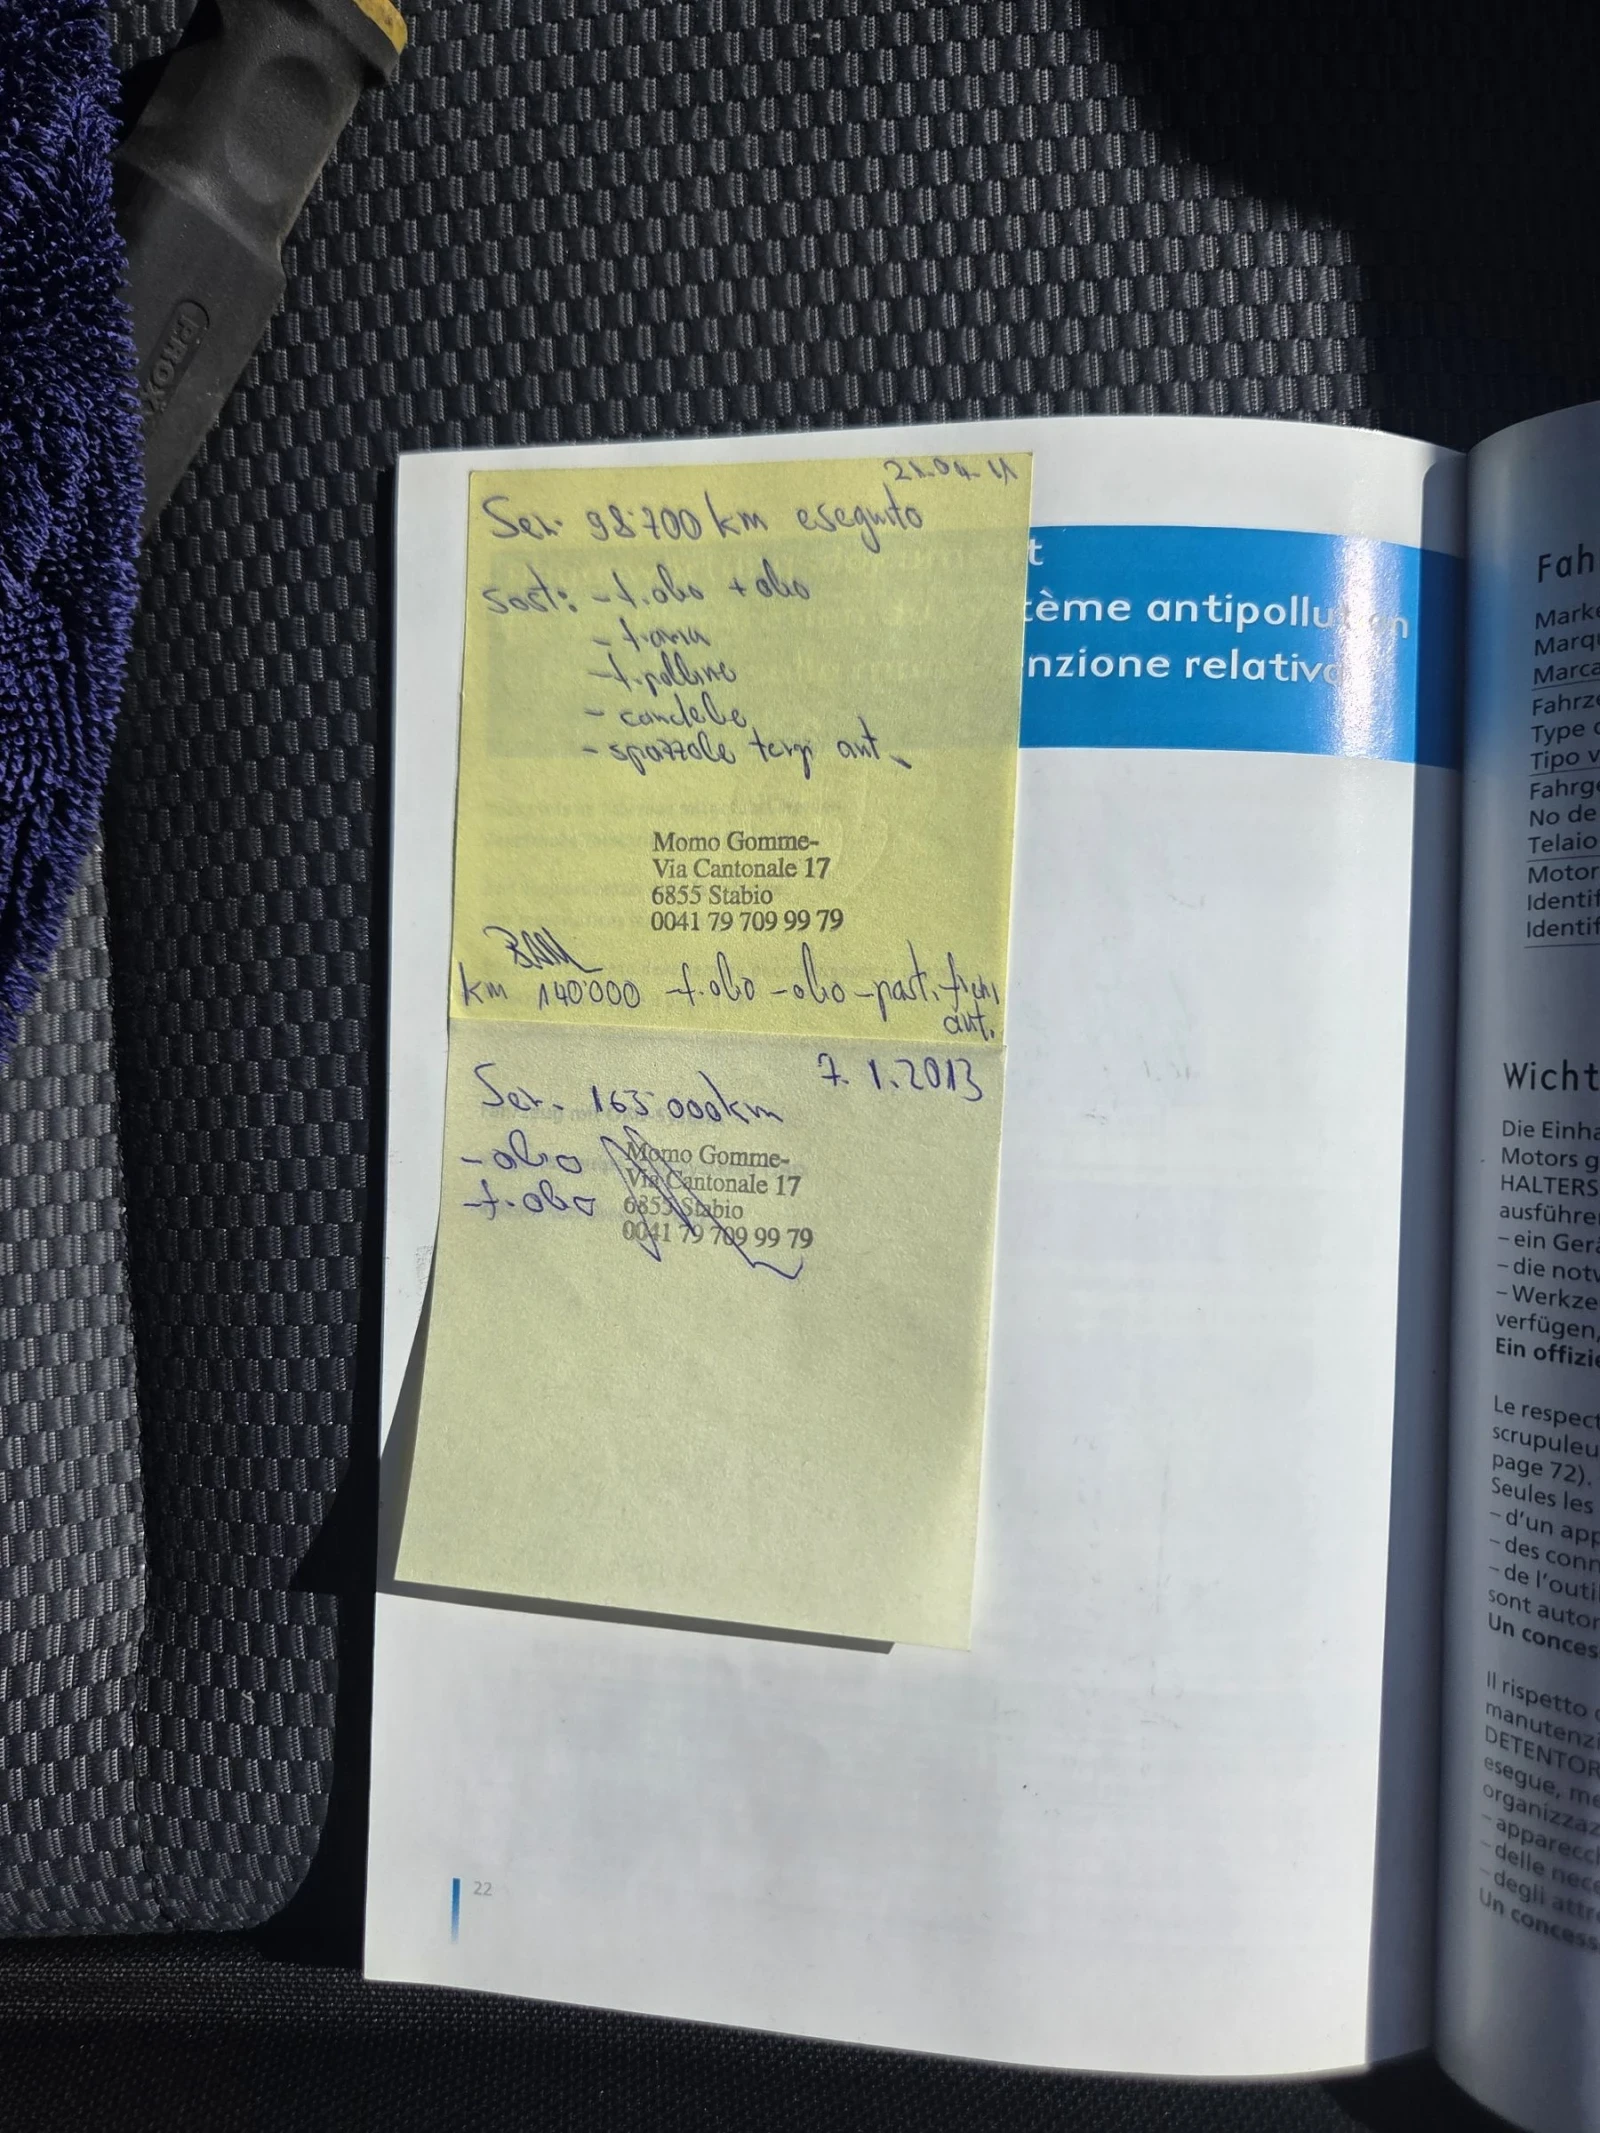 21.04.11
Ser. 98'700 km eseguito
sost: - f. olio + olio
- f. aria
- f. polline
- candele
- spazzole tergi ant.
Momo Gomme-
Via Cantonale 17
6855 Stabio
0041 79 709 99 79
km 140'000 - f. olio - olio - past. freni
ant.
7.1.2013
Ser. 163'000 km
- olio
- f. olio
Momo Gomme-
Via Cantonale 17
6855 Stabio
0041 79 709 99 79
t
tème antipollution
nzione relativa
22
PROX
Fah
Marke
Marqu
Marca
Fahrze
Type d
Tipo v
Fahrge
No de
Telaio
Motor
Identif
Identif
Wicht
Die Einha
Motors g
HALTERS
ausführe
– ein Gerä
– die notw
– Werkze
verfügen,
Ein offizie
Le respect
scrupuleu
page 72).
Seules les
– d'un app
– des conn
– de l'outil
sont autor
Un conces
Il rispetto d
manutenzi
DETENTOR
esegue, me
organizzaz
– apparecch
– delle nece
– degli attre
Un concess